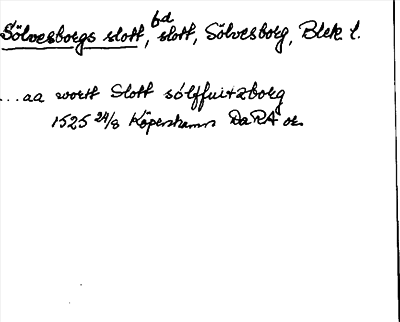 Sölvesborgs slott, bd slott, Sölvesborg, Blek l.
...aa wortt Slott sólffuitzborg
1525 24/8 Köpenhamn DaRA or.